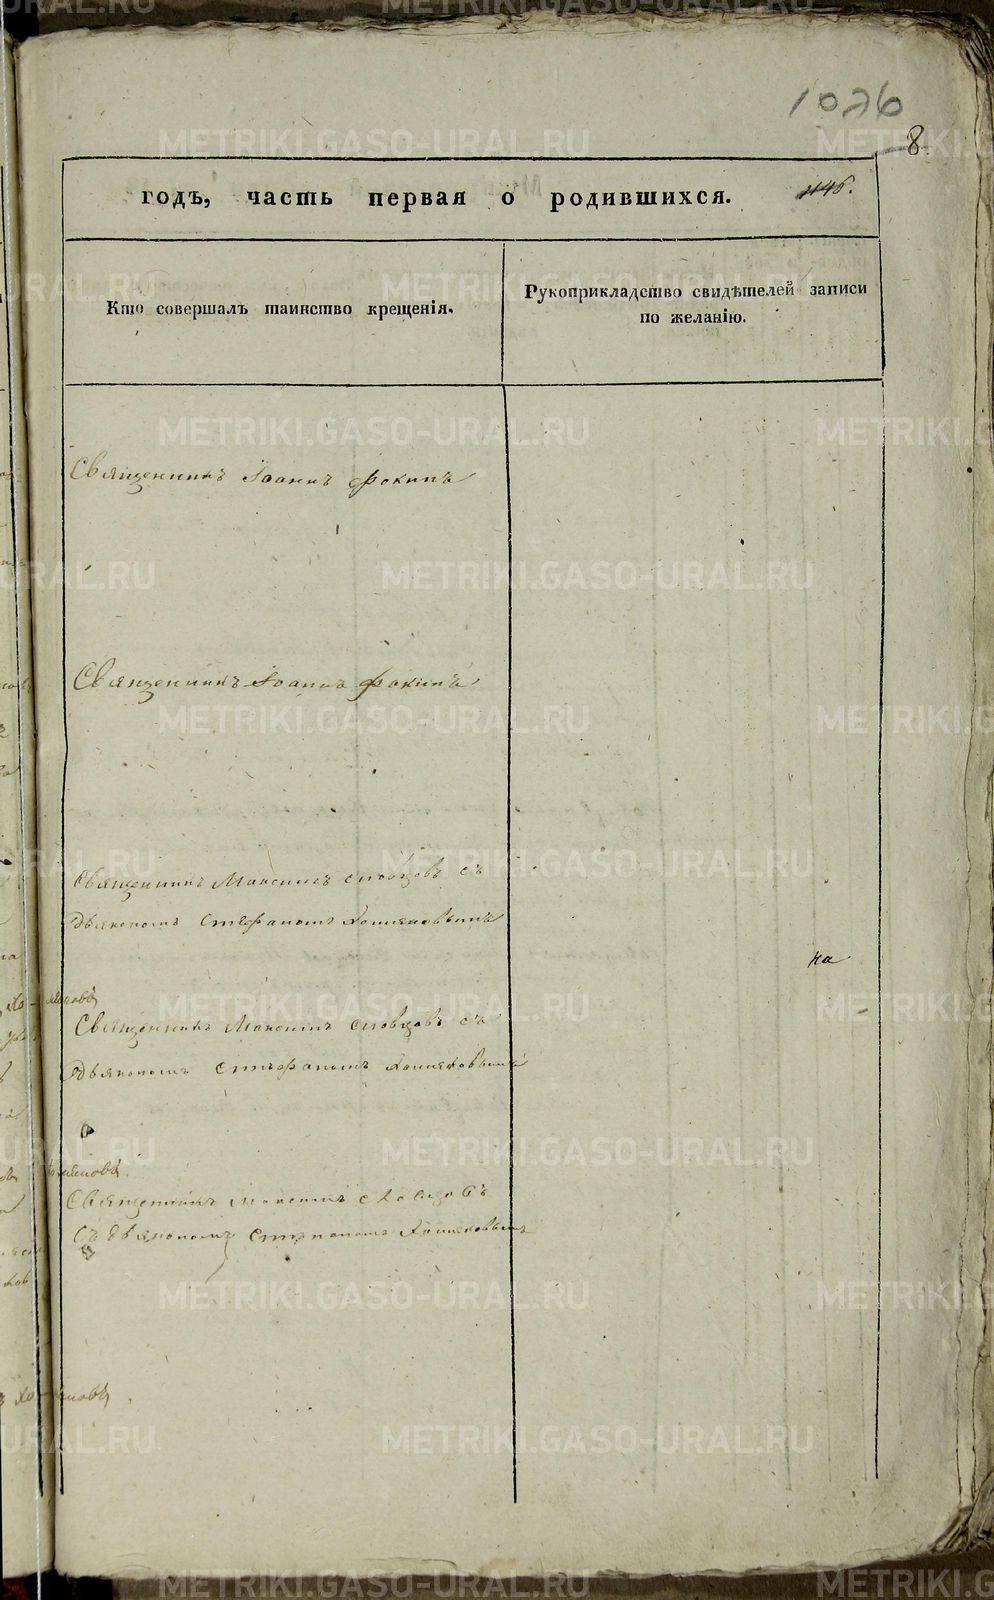 1026
8.
1146.
годъ, часть первая о родившихся.
Кто совершалъ таинство крещенія.
Рукоприкладство свидѣтелей записи
по желанію.
Священникъ Іоаннъ Фокинъ
Священникъ Іоаннъ Фокинъ
Священникъ Максимъ Словцовъ съ
Дьякономъ Стефаномъ Хомяковымъ
на
Священникъ Максимъ Словцовъ съ
Дьякономъ Стефаномъ Хомяковымъ
Священникъ Максимъ Словцовъ
Съ Дьякономъ Степаномъ Хомяковымъ
METRIKI.GASO-URAL.RU